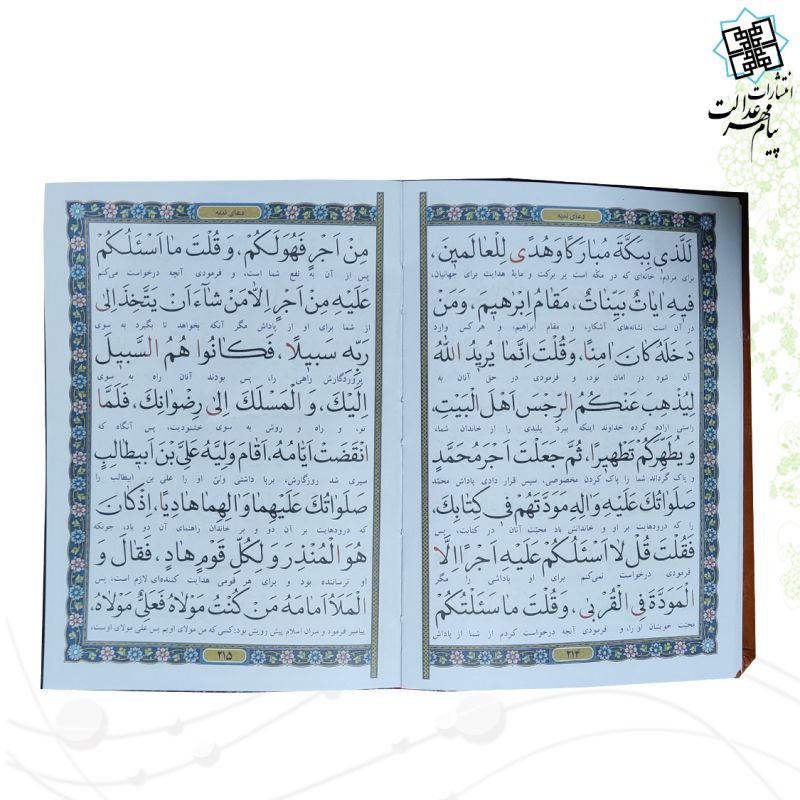 انتشارات
پیام مهر عدالت
دعای ندبه
لَلَّذی بِبَکَّةَ مُبارَکًا وَ هُدًی لِلْعالَمینَ،
برای مردم؛ خانه‌ای که در مکّه است پر برکت و مایهٔ هدایت برای جهانیان،
فیهِ ایاتٌ بَیِّناتٌ، مَقامُ اِبْرهیمَ، وَمَنْ
در آن است نشانه‌های آشکار، و مقام ابراهیم، و هر کس وارد
دَخَلَهُ کانَ امِنًا، وَقُلْتَ اِنَّما یُریدُ اللهُ
آن شود در امان بود، و فرمودی در حق آنان به
لِیُذْهِبَ عَنْکُمُ الرِّجْسَ اَهْلَ الْبَیْتِ،
راستی اراده کرده خداوند اینکه ببرد پلیدی را از خاندان شما،
وَ یُطَهِّرَکُمْ تَطْهیرًا، ثُمَّ جَعَلْتَ اَجْرَ مُحَمَّدٍ
و پاک گرداند شما را پاک کردن مخصوصی، سپس قرار دادی پاداش محمّد
صَلَواتُكَ عَلَیْهِ وَالِهِ مَوَدَّتَهُمْ فی کِتابِكَ،
را که درودهایت بر او و خاندانش باد محبّت آنان در کتابت، پس
فَقُلْتَ قُلْ لا اَسْئَلُکُمْ عَلَیْهِ اَجْرًا اِلَّا
فرمودی درخواست نمی‌کنم برای او پاداشی را مگر
الْمَوَدَّةَ فِی الْقُرْبی، وَقُلْتَ ما سَئَلْتُکُمْ
محبّت خویشان او را، و فرمودی آنچه درخواست کردم از شما از پاداش
۲۱۴
دعای ندبه
مِنْ اَجْرٍ فَهُوَلَکُمْ، وَ قُلْتَ ما اَسْئَلُکُمْ
پس از آن به نفع شما است، و فرمودی آنچه درخواست می‌کنم
عَلَیْهِ مِنْ اَجْرٍ اِلَّا مَنْ شآءَ اَنْ یَتَّخِذَ اِلی
از شما برای او از پاداش مگر آنکه بخواهد تا بگیرد به سوی
رَبِّه سَبیلًا، فَکانُوا هُمُ السَّبیلَ
پروردگارش راهی را، پس بودند آنان راه به سوی
اِلَیْكَ، وَ الْمَسْلَكَ اِلی رِضْوانِكَ، فَلَمَّا
تو، و راه و روش به سوی خشنودیت، پس آنگاه که
انْقَضَتْ اَیّامُهُ، اَقامَ وَلِیَّهُ عَلِیَّ بْنَ اَبیطالِبٍ
سپری شد روزگارش، برپا داشتی ولیّ او را علی بن ابیطالب را
صَلَواتُكَ عَلَیْهِما وَالِهِما هادِیًا، اِذْ کانَ
که درودهایت بر آن دو و بر خاندان راهنمای آن دو باد، چونکه
هُوَ الْمُنْذِرَ وَ لِکُلِّ قَوْمٍ هادٍ، فَقالَ وَ
او ترساننده بود و برای هر قومی هدایت کننده‌ای لازم است، پس
الْمَلَأُ اَمامَهُ مَنْ کُنْتُ مَوْلاهُ فَعَلِیٌّ مَوْلاهُ،
پیامبر فرمود و سران اسلام پیش رویش بود: کسی که من مولای اویم پس علی مولای اوست،
۲۱۵